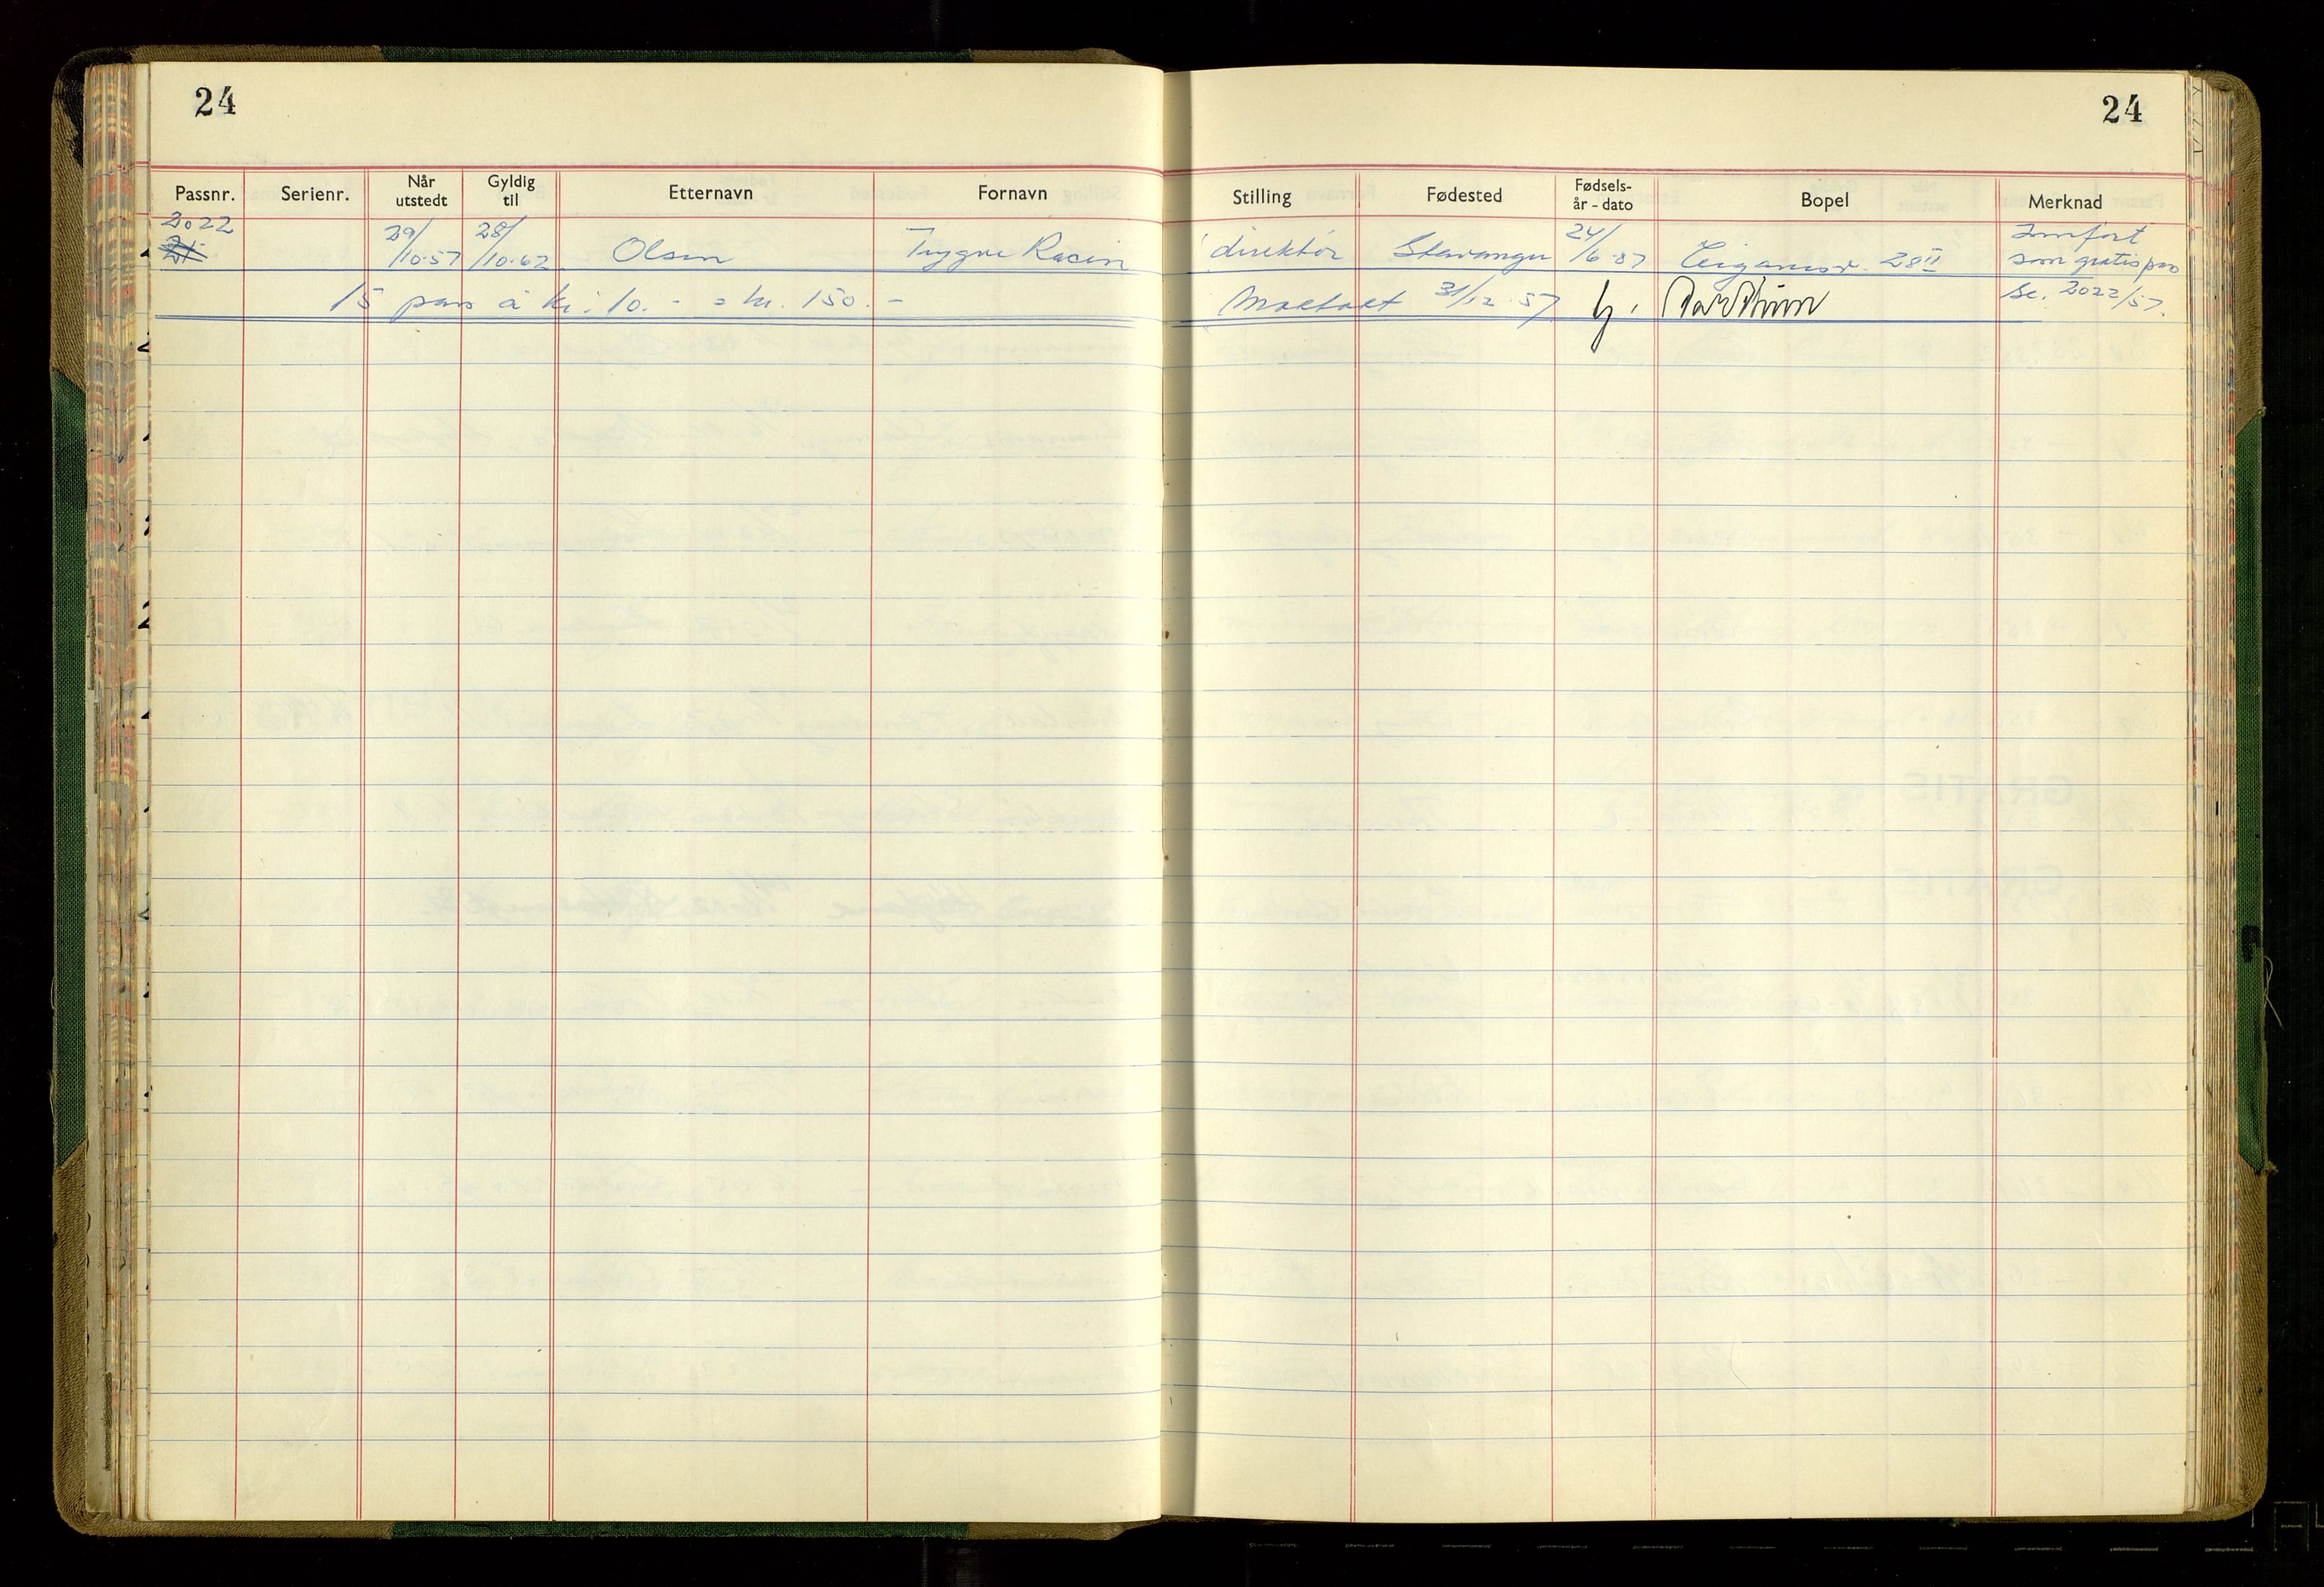 24
24
Passnr. Serienr. Når utstedt Gyldig til Etternavn Fornavn Stilling Fødested Fødsels- år - dato Bopel Merknad
2022 29/10-57 28/10-62 Olsen Trygve Racin direktör Stavanger 24/6-87 28 II Innfört som gratispass
15 pass á kr. 10.- = kr. 150.- Mottatt 31/12-57 Se. 2022/57.